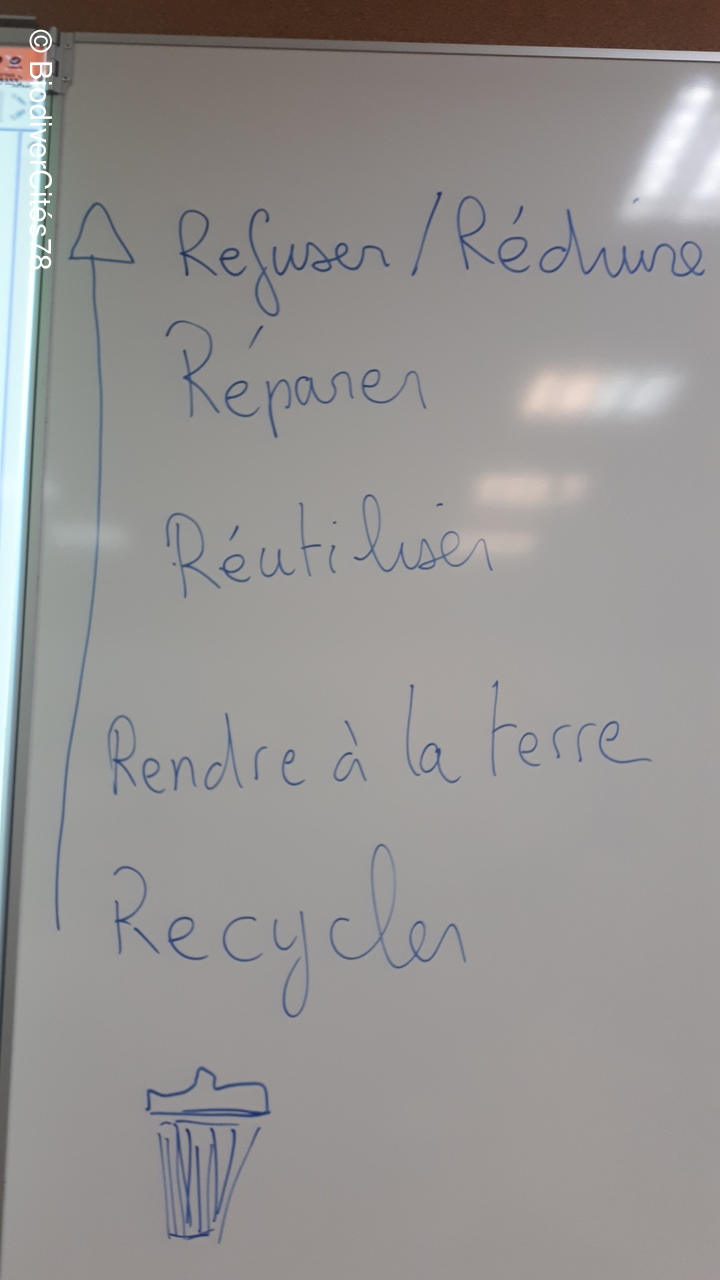 © BiodiverCités78
Refuser / Réduire
Réparer
Réutiliser
Rendre à la terre
Recycler